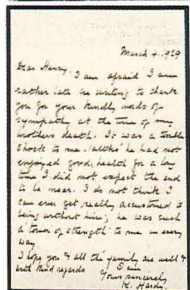 March 4. 1929
Dear Henry.
I am afraid I am
rather late in writing to thank
you for your kindly words of
sympathy at the time of my
brothers death. It was a terrible
shock to me. Altho' he had not
enjoyed good health for a long
time I did not expect the end
to be near. I do not think I
can ever get really accustomed to
being without him; he was such
a tower of strength to me in every
way.
I hope you & all the family are well &
with kind regards I am
Yours sincerely
K. Hardy.